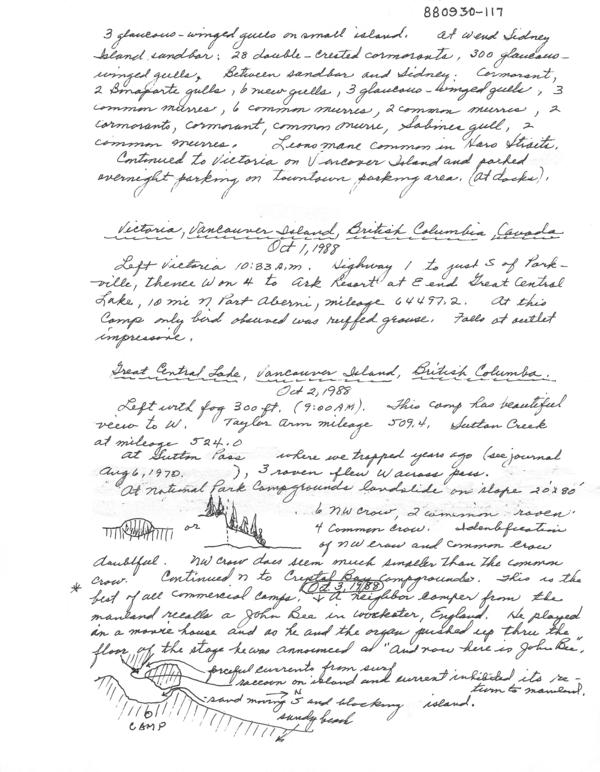 880930-117
3 glaucous-winged gulls on small island. At W end Sidney
Island sandbar: 28 double-crested cormorants, 300 glaucous-
winged gulls. Between sandbar and Sidney: Cormorant,
2 Bonaparte gulls, 6 mew gulls, 3 glaucous-winged gulls, 3
common murres, 6 common murres, 2 common murres, 2
cormorants, cormorant, common murre, Sabines gull, 2
common murres. Lions mane common in Haro Straits.
Continued to Victoria on Vancover Island and parked
overnight parking on towntown parking area. (At docks).
Victoria, Vancouver Island, British Columbia, Canada
Oct 1, 1988
Left Victoria 10:33 A.M. Highway 1 to just S of Park-
ville, thence W on 4 to Ark Resort at E end Great Central
Lake, 10 mi N Port Aberni, mileage 64497.2. At this
Camp only bird observed was ruffed grouse. Falls at outlet
impressive.
Great Central Lake, Vancouver Island, British Columba.
Oct 2, 1988
Left with fog 300 ft. (9:00 AM). This camp has beautiful
view to W. Taylor Arm mileage 509.4. Sutton Creek
at mileage 524.0
At Sutton Pass where we trapped years ago (see journal
Aug 6, 1970. ), 3 raven flew W across pass.
At National Park Campgrounds landslide on slope 20'x80'
or
6 NW crow, 2 common raven.
4 Common Crow. Identification
of NW crow and common crow
doubtful. NW crow does seem much smaller than the common
crow. Continued N to Crystal Bay Campgrounds. This is the
* best of all commercial camps. Oct. 3, 1988 A neighbor camper from the
mainland recalls a John Bee in Worchester, England. He played
in a movie house and as he and the organ pushed up thru the
floor of the stage he was announced as "And now here is John Bee."
forceful currents from surf
raccoon on island and current inhibited its re-
turn to mainland.
sand moving S and blocking island.
N
sandy beach
CAMP